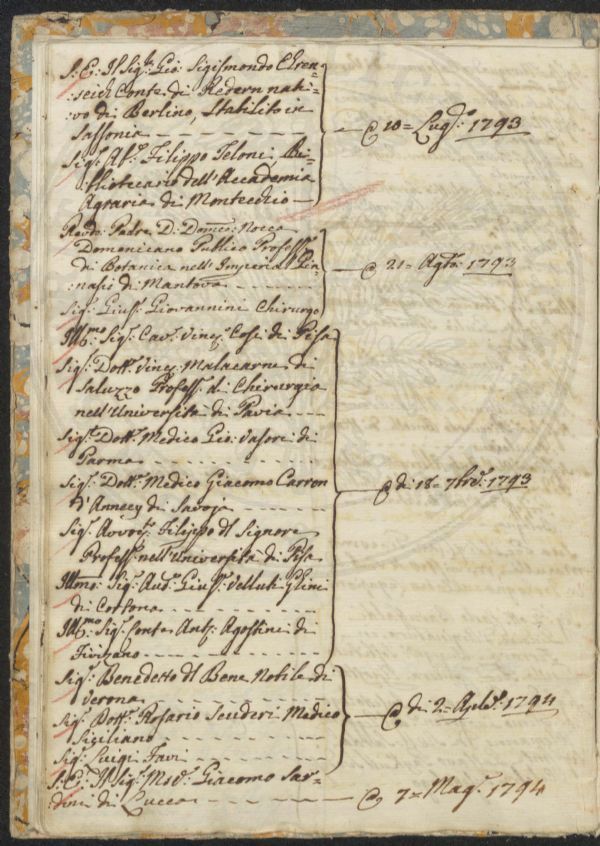 S: E: Il Sig.r Gio: Sigismondo Ehren-
:reich Conte di Redern nati-
vo di Berlino, Stabilito in
Sassonia
Sig.r Ab.e Filippo Teloni, Bi-
bliotecario dell'Accademia
Agraria di Montecchio
@ 10= Lug.o 1793
Revdo: Padre D: Domco: Nocca
Domenicano Publico Profess.e
di Botanica nell'Imperial Gin-
nasio di Mantova
Sig.r Gius.e Giovannini Chirurgo
@ 21= Agto: 1793
Ill:mo Sig.r Cav.r Vinc.o Cosi di Pisa
Sig.r Dott.r Vinc.o Malacarne di
Saluzzo Profess.e di Chirurgia
nell'Università di Pavia
Sig.r Dott.r Medico Gio: Vasori di
Parma
Sig.r Dott.r Medico Giacomo Carron
d'Annecy di Savoja
Sig.r Avvoc.o Filippo del Signore
Profess.e nell'Università di Pisa
Illmo: Sig.r Aud.e Gius.e Velluti Ghini
di Cortona
Ill:mo Sig.r Conte Ant.o Agostini di
Fivizano
@ di 18= 7bre: 1793
Sig.r Benedetto del Bene Nobile di
Verona
Sig.r Dott.r Rosario Scuderi Medico
Siciliano
Sig.r Luigi Favi
@ di 2= Aple: 1794
S: E: Il Sig.r Giacomo Sar-
dini di Lucca
@ 7= Mag.o 1794